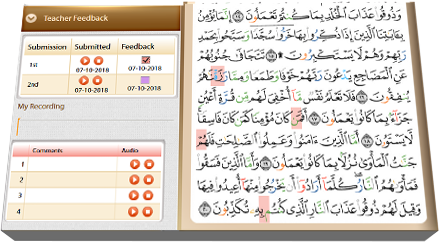 Teacher Feedback
Submission Submitted Feedback
1st 07-10-2018 07-10-2018
2nd 07-10-2018 07-10-2018
My Recording
Comments Audio
1
2
3
4
وَذُوقُوا۟ عَذَابَ ٱلْخُلْدِ بِمَا كُنتُمْ تَعْمَلُونَ ١٤ إِنَّمَا يُؤْمِنُ
بِـَٔايَـٰتِنَا ٱلَّذِينَ إِذَا ذُكِّرُوا۟ بِهَا خَرُّوا۟ سُجَّدًا وَسَبَّحُوا۟ بِحَمْدِ
رَبِّهِمْ وَهُمْ لَا يَسْتَكْبِرُونَ ١٥ تَتَجَافَىٰ جُنُوبُهُمْ
عَنِ ٱلْمَضَاجِعِ يَدْعُونَ رَبَّهُمْ خَوْفًا وَطَمَعًا وَمِمَّا رَزَقْنَـٰهُمْ
يُنفِقُونَ ١٦ فَلَا تَعْلَمُ نَفْسٌ مَّآ أُخْفِىَ لَهُم مِّن قُرَّةِ أَعْيُنٍ
جَزَآءًۢ بِمَا كَانُوا۟ يَعْمَلُونَ ١٧ أَفَمَن كَانَ مُؤْمِنًا كَمَن كَانَ فَاسِقًا
لَّا يَسْتَوُۥنَ ١٨ أَمَّا ٱلَّذِينَ ءَامَنُوا۟ وَعَمِلُوا۟ ٱلصَّـٰلِحَـٰتِ فَلَهُمْ
جَنَّـٰتُ ٱلْمَأْوَىٰ نُزُلًۢا بِمَا كَانُوا۟ يَعْمَلُونَ ١٩ وَأَمَّا ٱلَّذِينَ فَسَقُوا۟
فَمَأْوَىٰهُمُ ٱلنَّارُ كُلَّمَآ أَرَادُوٓا۟ أَن يَخْرُجُوا۟ مِنْهَآ أُعِيدُوا۟ فِيهَا
وَقِيلَ لَهُمْ ذُوقُوا۟ عَذَابَ ٱلنَّارِ ٱلَّذِى كُنتُم بِهِۦ تُكَذِّبُونَ ٢٠